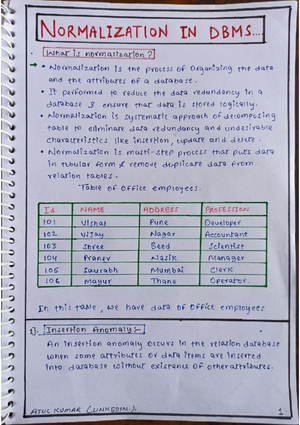 NORMALIZATION IN DBMS....
What is normalization?
• Normalization is the process of Organizing the data
and the attributes of a database.
• It performed to reduce the data redundancy in a
database & ensure that data is stored logically.
• Normalization is systematic approach of decomposing
table to eliminate data redundancy and undesirable
characteristics like insertion, update and delete.
• Normalization is multi-step process that puts data
in tubular form & remove duplicate data from
relation tables.
Table of Office employees.
Id NAME ADDRESS PROFESSION
101 Vishal Pune Developer
102 Vijay Nagar Accountant
103 Shree Beed Scientist
104 Pranav Nasik Manager
105 Saurabh Mumbai Clerk
106 Mayur Thane Operator.
In this table, we have data of Office employees
1). Insertion Anomaly:-
An insertion anomaly occurs in the relation database
when some attributes or data items are inserted
into database without existence of other attributes.
ATUL KUMAR (LINKEDIN).
1